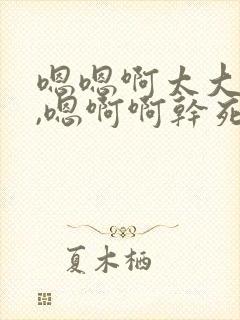 嗯嗯啊太大
,嗯啊啊幹死
夏木栖